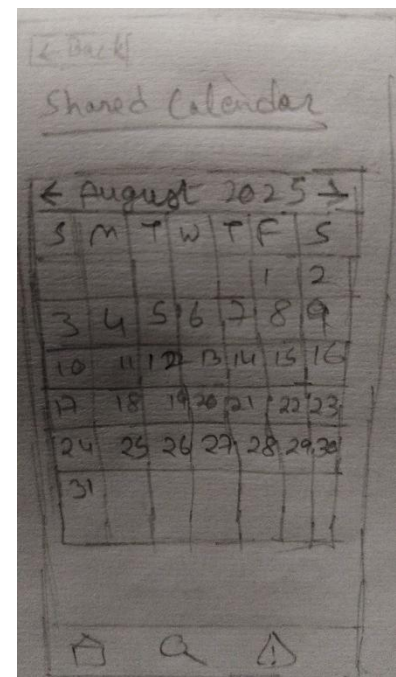 ← Back
Shared Calendar
← August 2025 →
S M T W T F S
1 2
3 4 5 6 7 8 9
10 11 12 13 14 15 16
17 18 19 20 21 22 23
24 25 26 27 28 29 30
31